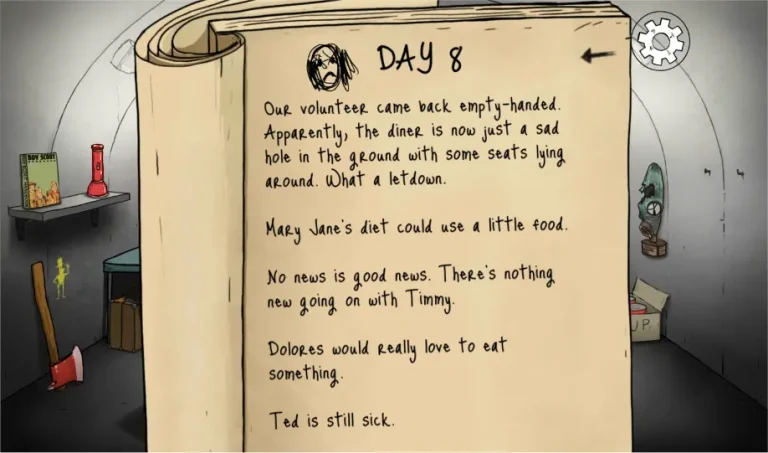 DAY 8
Our volunteer came back empty-handed.
Apparently, the diner is now just a sad
hole in the ground with some seats lying
around. What a letdown.
Mary Jane's diet could use a little food.
No news is good news. There's nothing
new going on with Timmy.
Dolores would really love to eat
something.
Ted is still sick.
BOY SCOUT